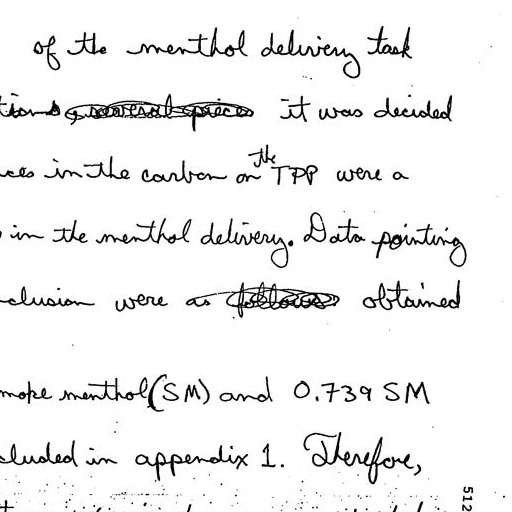 of the menthol delivery task
tions, several pieces it was decided
ces in the carbon on the TPP were a
in the menthol delivery. Data pointing
clusion were as follows obtained
moke menthol (SM) and 0.739 SM
cluded in appendix 1. Therefore,
512